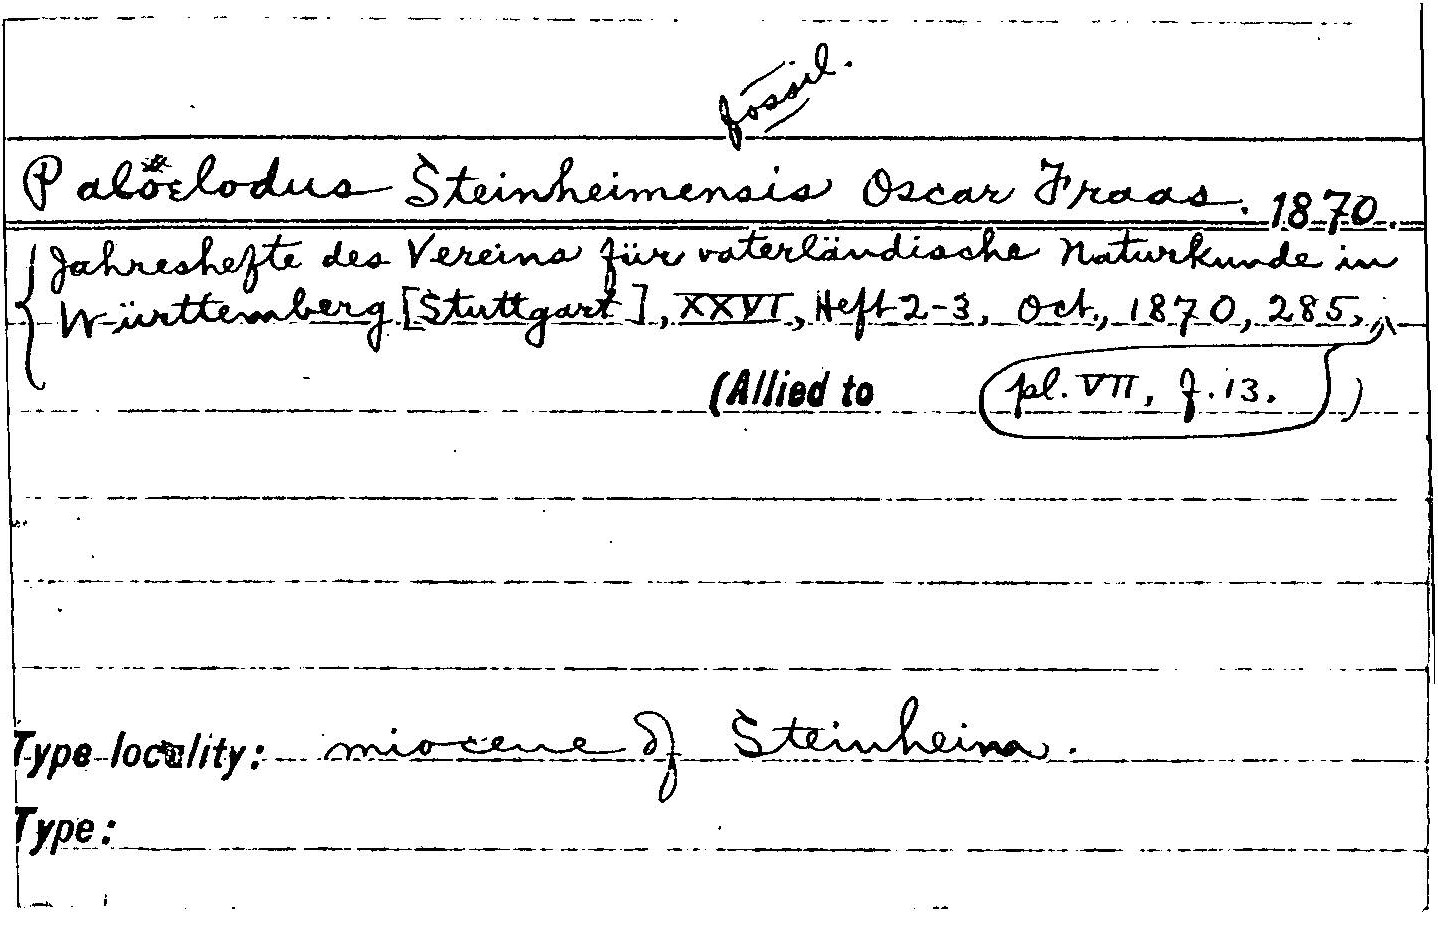 fossil.
Paloelodus Steinheimensis Oscar Fraas. 1870.
Jahreshefte des Vereins für vaterländische Naturkunde in
Württemberg [Stuttgart], XXVI, Heft 2-3, Oct., 1870, 285,
(Allied to pl. VII, f. 13. )
Type locality: miocene of Steinheim.
Type: